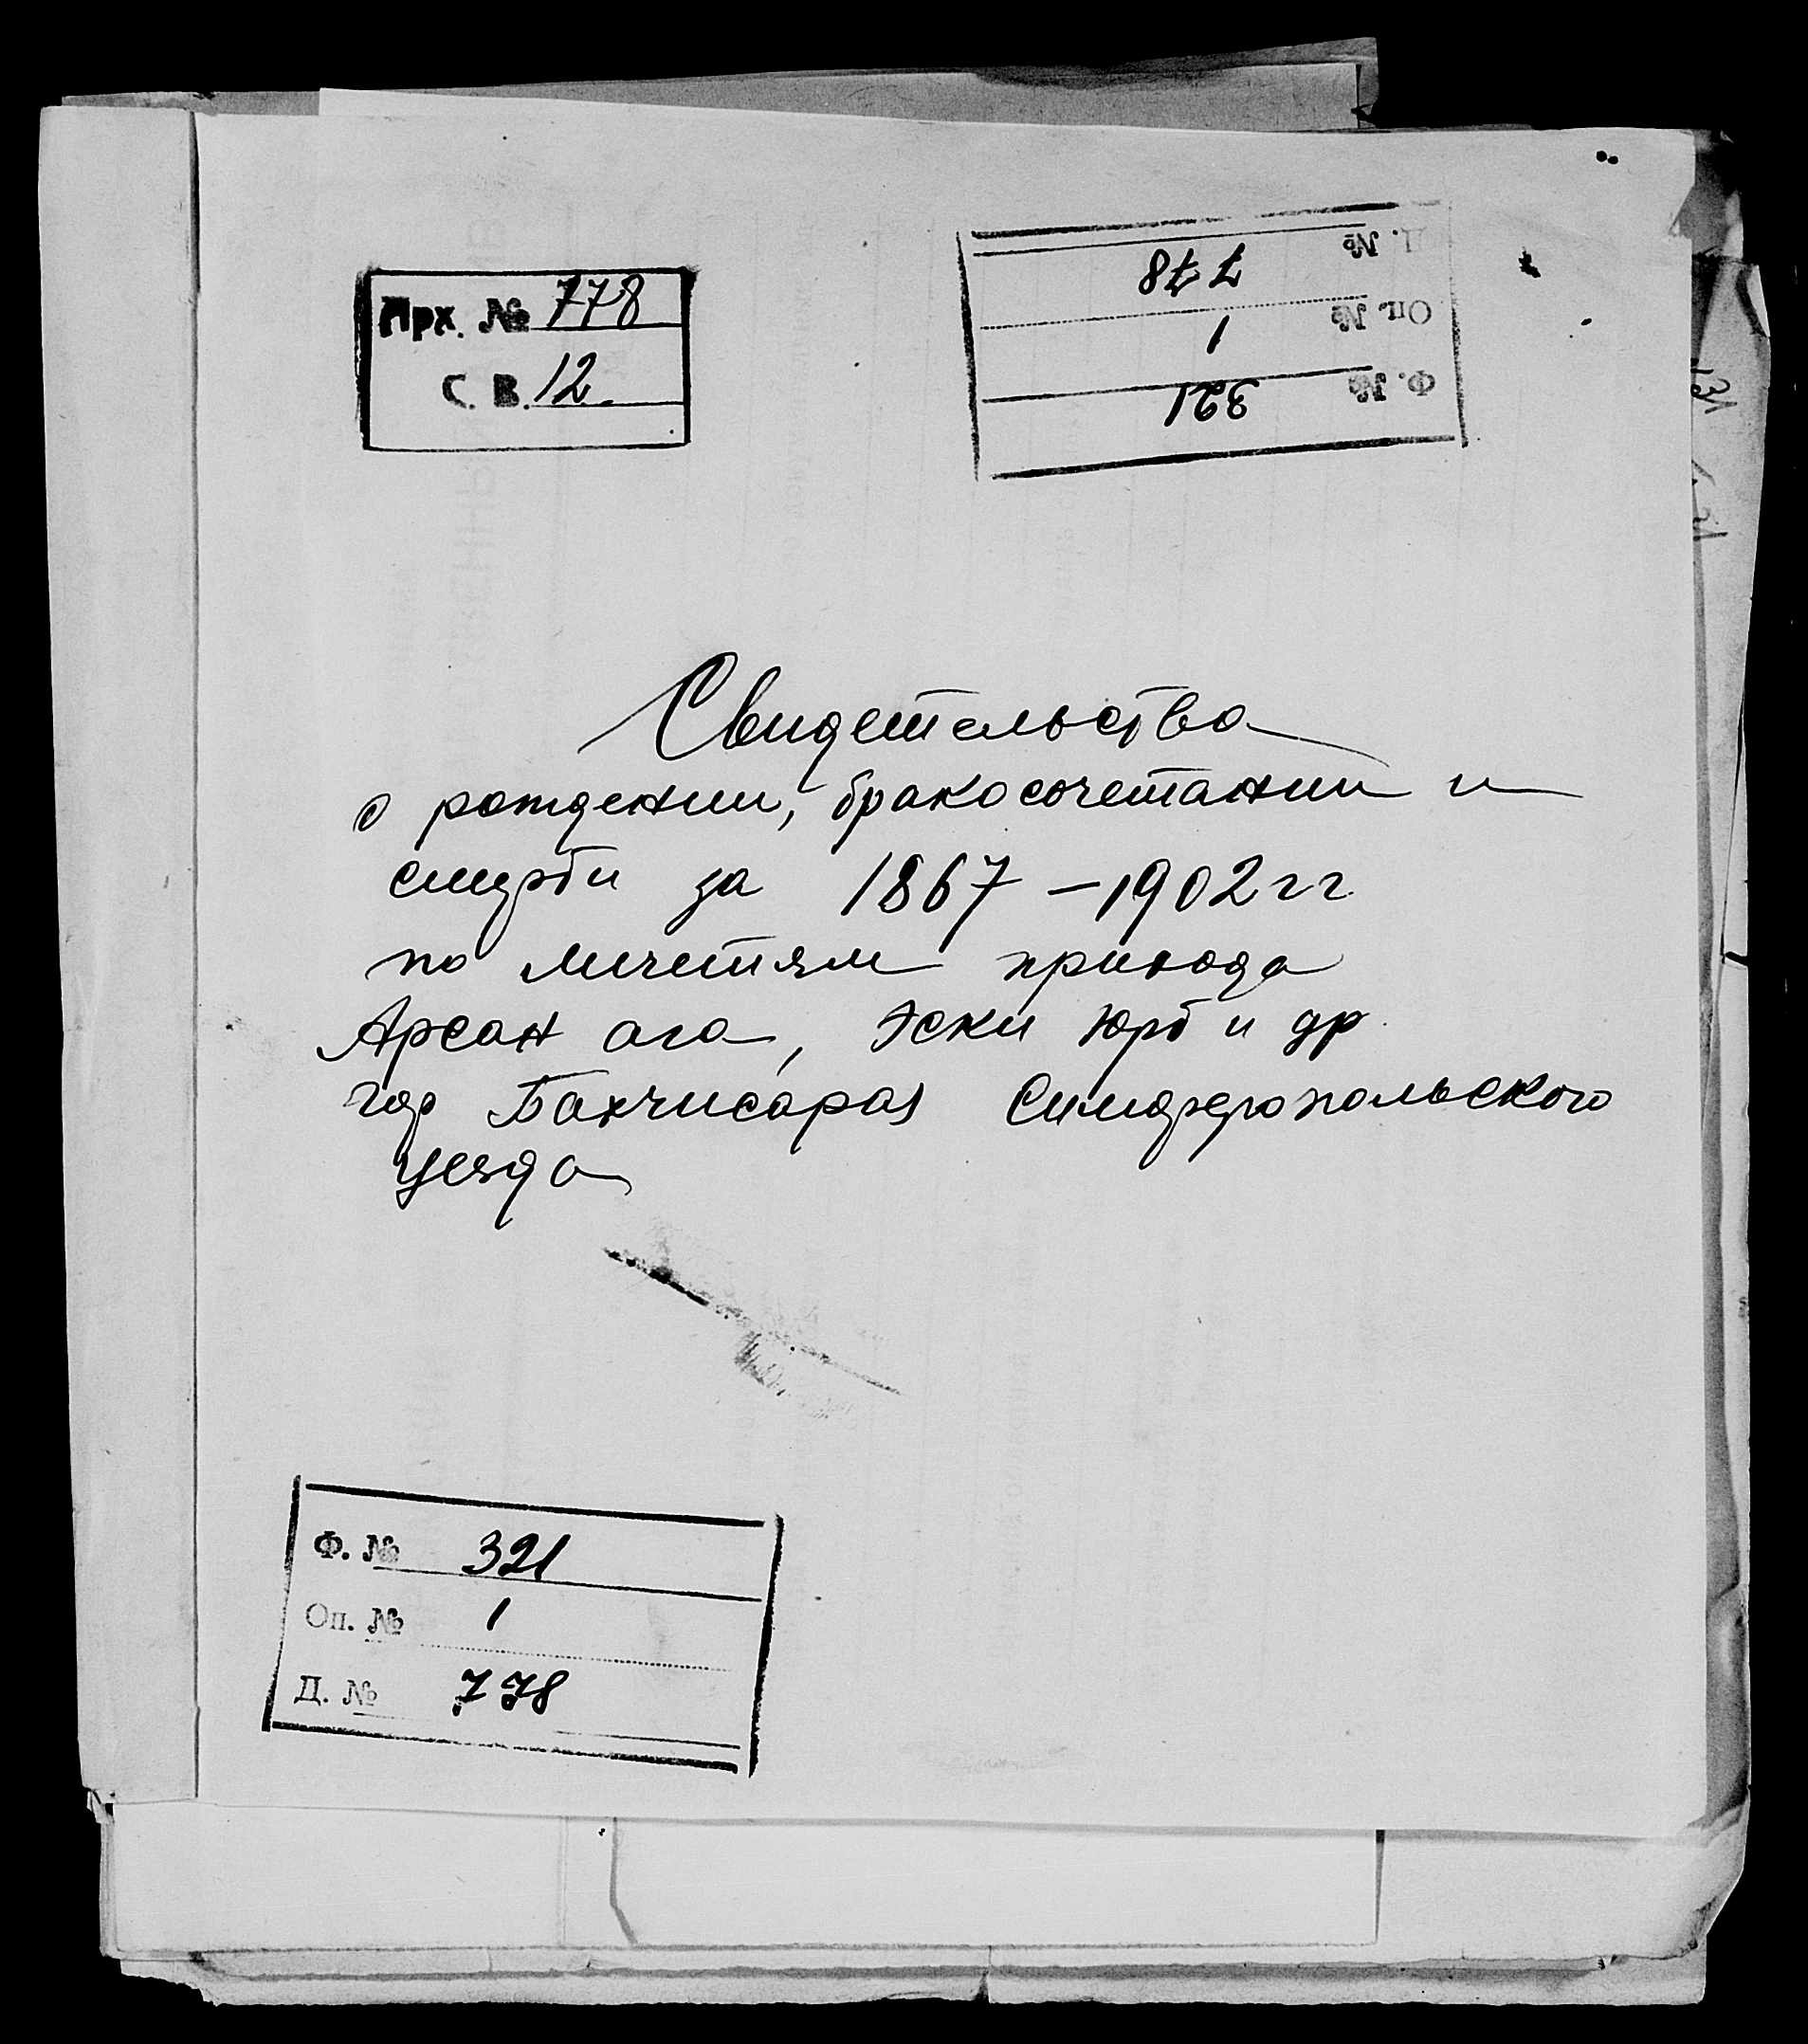 Арх. № 778
С. В. 12.
Д. № 778
Оп. № 1
Ф. № 321
Свидетельства
о рождении, бракосочетании и
смерти за 1867 – 1902 гг.
по мечетям прихода
Арсан ага, Эски Юрт и др.
гор Бахчисарая Симферопольского
уезда
Ф. № 321
Оп. № 1
Д. № 778